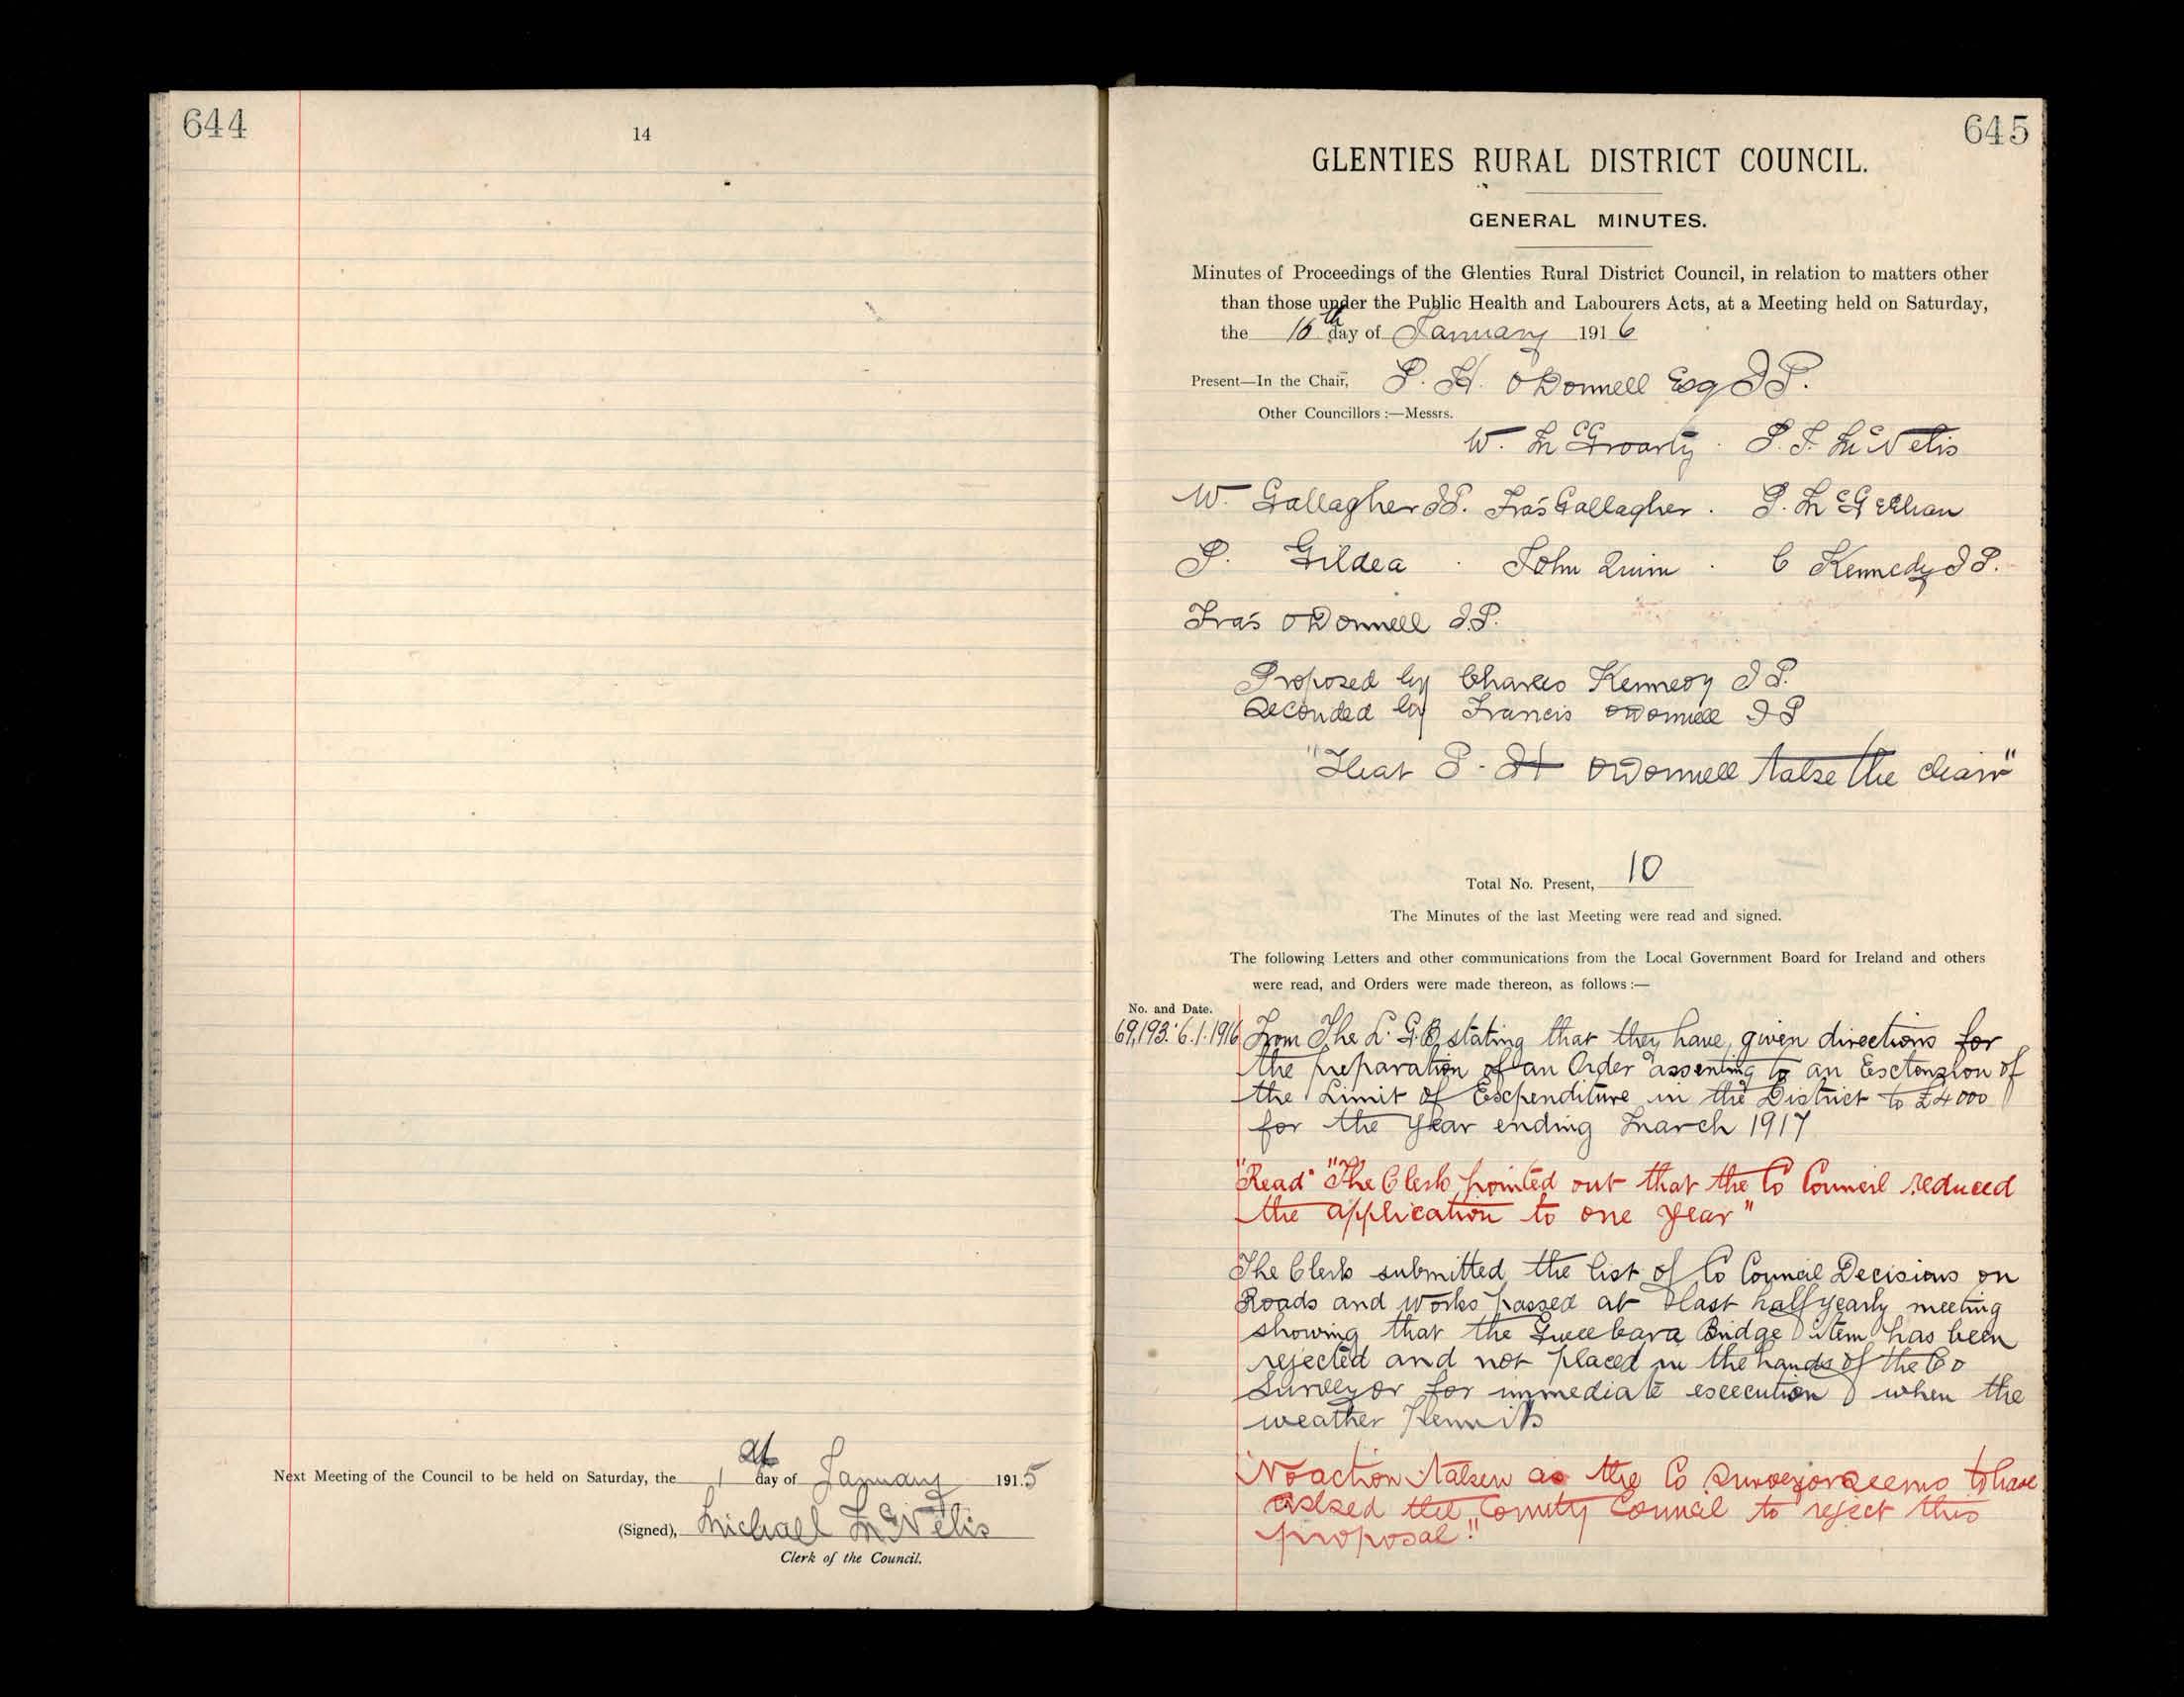 644
14
Next Meeting of the Council to be held on Saturday, the 1st day of January 1915
(Signed), Michael McNelis
Clerk of the Council.
645
GLENTIES RURAL DISTRICT COUNCIL.
GENERAL MINUTES.
Minutes of Proceedings of the Glenties Rural District Council, in relation to matters other
than those under the Public Health and Labourers Acts, at a Meeting held on Saturday,
the 15th day of January 1916
Present—In the Chair, P. H. O'Donnell Esq J P.
Other Councillors :—Messrs.
W. McGroarty . P. F. McNelis
W. Gallagher J P. Fras Gallagher . P. McGeehan
P. Gildea . John Quinn . C Kennedy J P.
Fras O'Donnell J. P.
Proposed by Charles Kennedy J P.
Seconded by Francis O'Donnell J P
"That P. H O'Donnell take the chair"
Total No. Present, 10
The Minutes of the last Meeting were read and signed.
The following Letters and other communications from the Local Government Board for Ireland and others
were read, and Orders were made thereon, as follows :—
No. and Date.
69,193. 6.1.1916 From The L. G. B. stating that they have given directions for
the preparation of an Order assenting to an Extension of
the Limit of Expenditure in the District to £4000
for the Year ending March 1917
"Read" "The Clerk pointed out that the Co Council reduced
the application to one year"
The Clerk submitted the list of Co Council Decisions on
Roads and Works passed at last half yearly meeting
showing that the Gweebara Bridge item has been
rejected and not placed in the hands of the Co
Surveyor for immediate execution when the
weather permits
"No action taken as the Co Surveyor seems to have
asked the County Council to reject this
proposal"